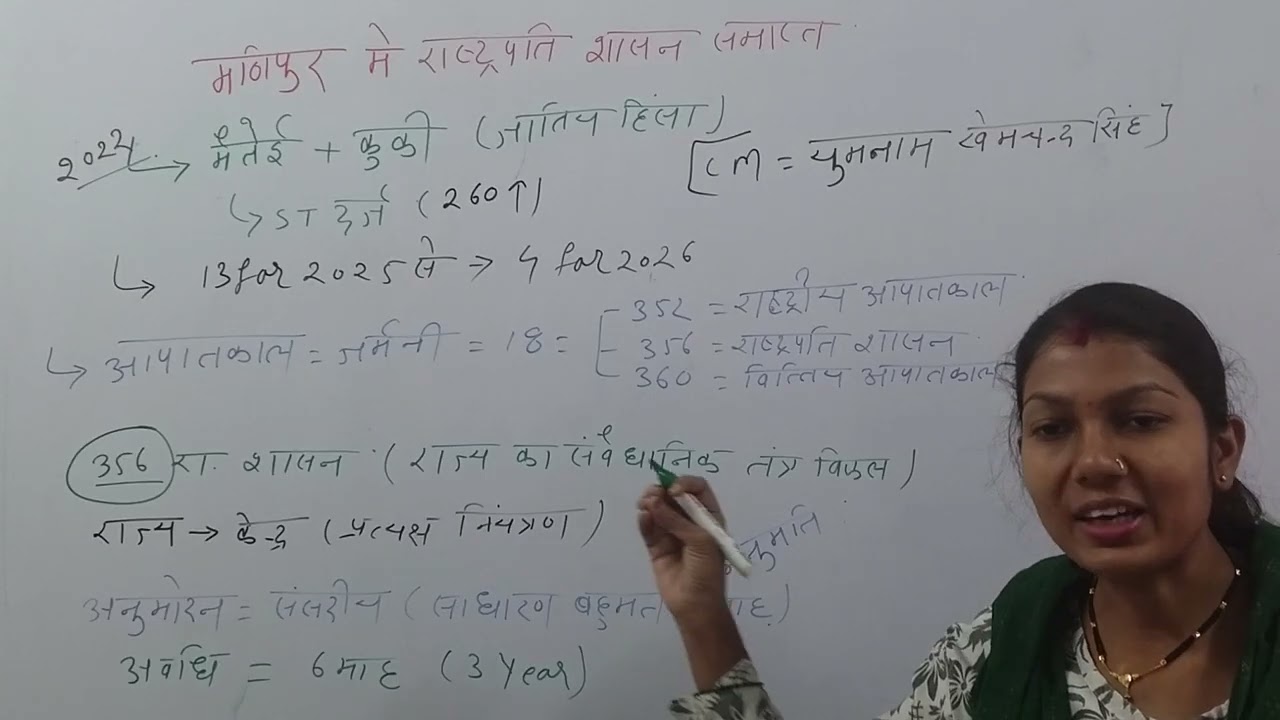 मणिपुर मे राष्ट्रपति शासन समाप्त
2024 → मैतेई + कुकी (जातिय हिंसा)
[CM = युमनाम खेमचन्द सिंह]
↳ ST दर्ज (260↑)
↳ 13 far 2025 से → 4 far 2026
↳ आपातकाल = जर्मनी = 18 =
352 = राष्ट्रीय आपातकाल
356 = राष्ट्रपति शासन
360 = वित्तिय आपातकाल
356 रा. शासन (राज्य का संवैधानिक तंत्र विफल)
राज्य → केन्द्र (प्रत्यक्ष नियंत्रण)
अनुमोदन = संसदीय (साधारण बहुमत
अवधि = 6 माह (3 Year)